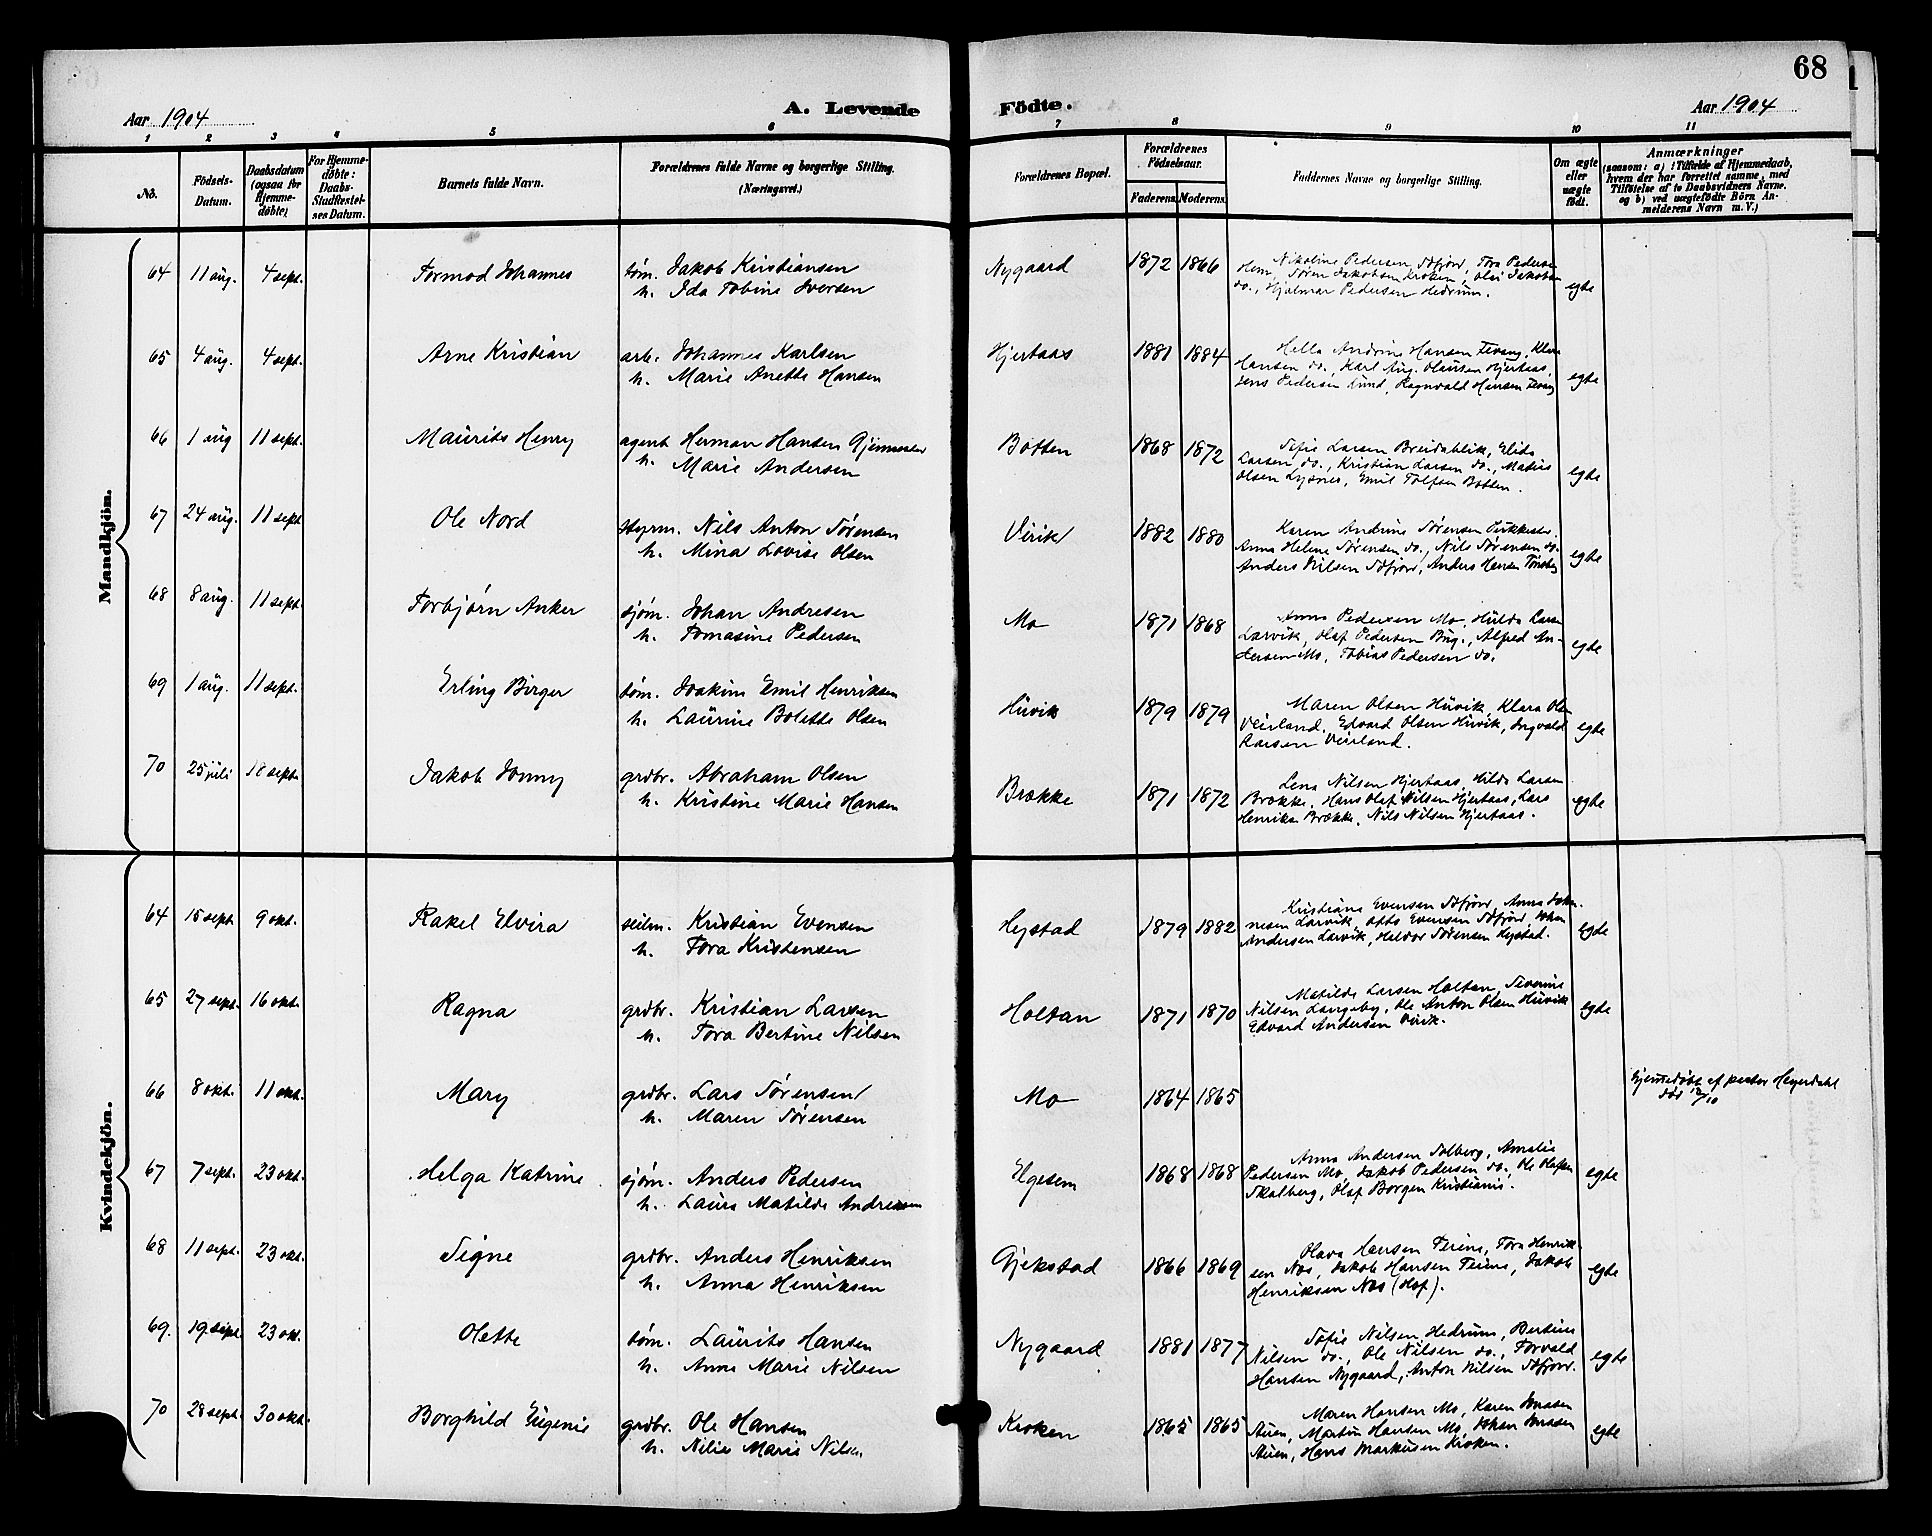 68
Aar 1904
A. Levende Fødte.
Aar 1904
1 2 3 4 5 6 7 8 9 10 11
No.
Fødsels-
Datum.
Daabsdatum
(ogsaa for
Hjemme-
døbte)
For Hjemme-
døbte:
Daabs-
Stadfæstel-
ses Datum.
Barnets fulde Navn.
Forældrenes fulde Navne og borgerlige Stilling.
(Næringsvei.)
Forældrenes Bopæl.
Forældrenes
Fødselsaar.
Faderens. Moderens.
Faddernes Navne og borgerlige Stilling.
Om ægte
eller
uægte
født.
Anmærkninger
(saasom: a) i Tilfælde af Hjemmedaab,
hvem der har forrettet samme, med
Tilføielse af to Daabsvidners Navne,
og b) ved uægtefødte Børn An-
melderens Navn m. V.)
Mandkjön.
64 11 aug. 4 sept. Tormod Johannes tøm. Jakob Kristiansen
h. Ida Tobine Iversen
Nygaard 1872 1866 Nikoline Pedersen Sdfjord, Tora Pedersen
Hem, Søren Jakobsen Kroken, Olai Jakobsen
do., Hjalmar Pedersen Hedrum. egte
65 4 aug. 4 sept. Arne Kristian arb. Johannes Karlsen
h. Marie Anette Hansen
Hjertaas 1881 1884 Hella Andrine Hansen Tevang, Klara
Hansen do., Karl Aug. Olausen Hjertaas,
Jens Pedersen Lund, Ragnvald Hansen Tevang egte
66 1 aug 11 sept. Maurits Henry agent Herman Hansen Gjennestad
h. Marie Andersen
Botten 1868 1872 Sofie Larsen Breidablik, Elida
Larsen do., Kristian Larsen do., Matias
Olsen Lysnes, Emil Tolfsen Botten. egte
67 24 aug. 11 sept Ole Nord styrm. Nils Anton Sørensen
h. Mina Lovise Olsen
Virik 1882 1880 Karen Andrine Sørensen
Anna Helene Sørensen do., Nils Sørensen do.
Anders Nilsen Sdfjord, Anders Hansen Tønsberg egte
68 8 aug. 11 sept. Torbjørn Anker sjøm. Johan Andresen
h. Tomasine Pedersen
Mo 1871 1868 Anna Pedersen Mo, Hulda Larsen
Larvik, Olaf Pedersen Bug., Alfred An-
dersen Mo, Tobias Pedersen do. egte
69 1 aug. 11 sept. Erling Birger tøm. Joakim Emil Henriksen
h. Laurine Bolette Olsen
Huvik 1879 1879 Maren Olsen Huvik, Klara Olsen
Veirland, Edvard Olsen Huvik, Ingvald
Larsen Veirland. egte
70 25 juli 18 sept. Jakob Jonny grdbr. Abraham Olsen
h. Kristine Marie Hansen
Brække 1871 1872 Lena Nilsen Hjertaas, Hilda Larsen
Brække, Hans Olaf Nilsen Hjertaas, Lars
Henriksen Brække, Nils Nilsen Hjertaas. egte
Kvindekjön.
64 15 sept 9 okt. Rakel Elvira seilm. Kristian Evensen
h. Tora Kristensen
Hystad 1879 1882 Kristiane Evensen Sdfjord, Anna Johan-
nesen Larvik, Otto Evensen Sdfjord, Johan
Andersen Larvik, Heldor Sørensen Hystad. egte
65 27 sept. 16 okt. Ragna grdbr. Kristian Larsen
h. Tora Bertine Nilsen
Holtan 1871 1870 Matilde Larsen Holtan, Severine
Nilsen Langeby, Ole Anton Olsen Huvik
Edvard Andersen Virik. egte
66 8 okt. 11 okt. Mary grdbr. Lars Sørensen
h. Maren Sørensen
Mo 1864 1865 Hjemmedøbt af pastor Heyerdahl
død 12/10
67 7 sept. 23 okt. Helga Katrine sjøm. Anders Pedersen
h. Laura Matilde Andresen
Elgesem 1868 1868 Anna Andersen Solberg, Amalie
Pedersen Mo, Jakob Pedersen do., Ole Olafsen
Skalberg, Olaf Borgen Kristiania. egte
68 11 sept. 23 okt. Signe grdbr. Anders Henriksen
h. Anna Henriksen
Gjekstad 1866 1869 Olava Hansen Feiene, Tora Henrik-
sen Nos, Jakob Hansen Feiene, Jakob
Henriksen Nos (Hof). egte
69. 19. sept. 23 okt. Olette tøm. Laurits Hansen
h. Anna Marie Nilsen
Nygaard 1881 1877 Sofie Nilsen Hedrum, Bertine
Nilsen do., Ole Nilsen do., Torvald
Hansen Nygaard, Anton Nilsen Sdfjord. egte
70 28 sept. 30 okt. Borghild Eugenie grdbr. Ole Hansen
h. Nilia Marie Nilsen
Kroken 1865 1865 Maren Hansen Mo, Karen Jonasen
Auen, Martin Hansen Mo, Johan Jonasen
Auen, Hans Markusen Kroken. egte